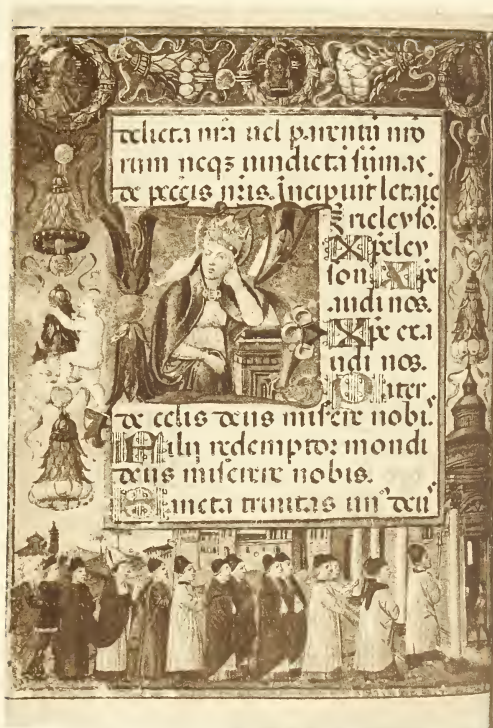 delicta nr̄a uel parentū nr̄o
rum neqz uindictā sumas
de pecc̄is nr̄is. Incipiunt letāie
rieleyso.
Xp̄eley
son Xp̄e
audi nos.
Xp̄e exa
udi nos.
Pater
de celis deus misere nobi.
Filij redemptor mondi
deus miserere nobis.
Sancta trinitas un deu